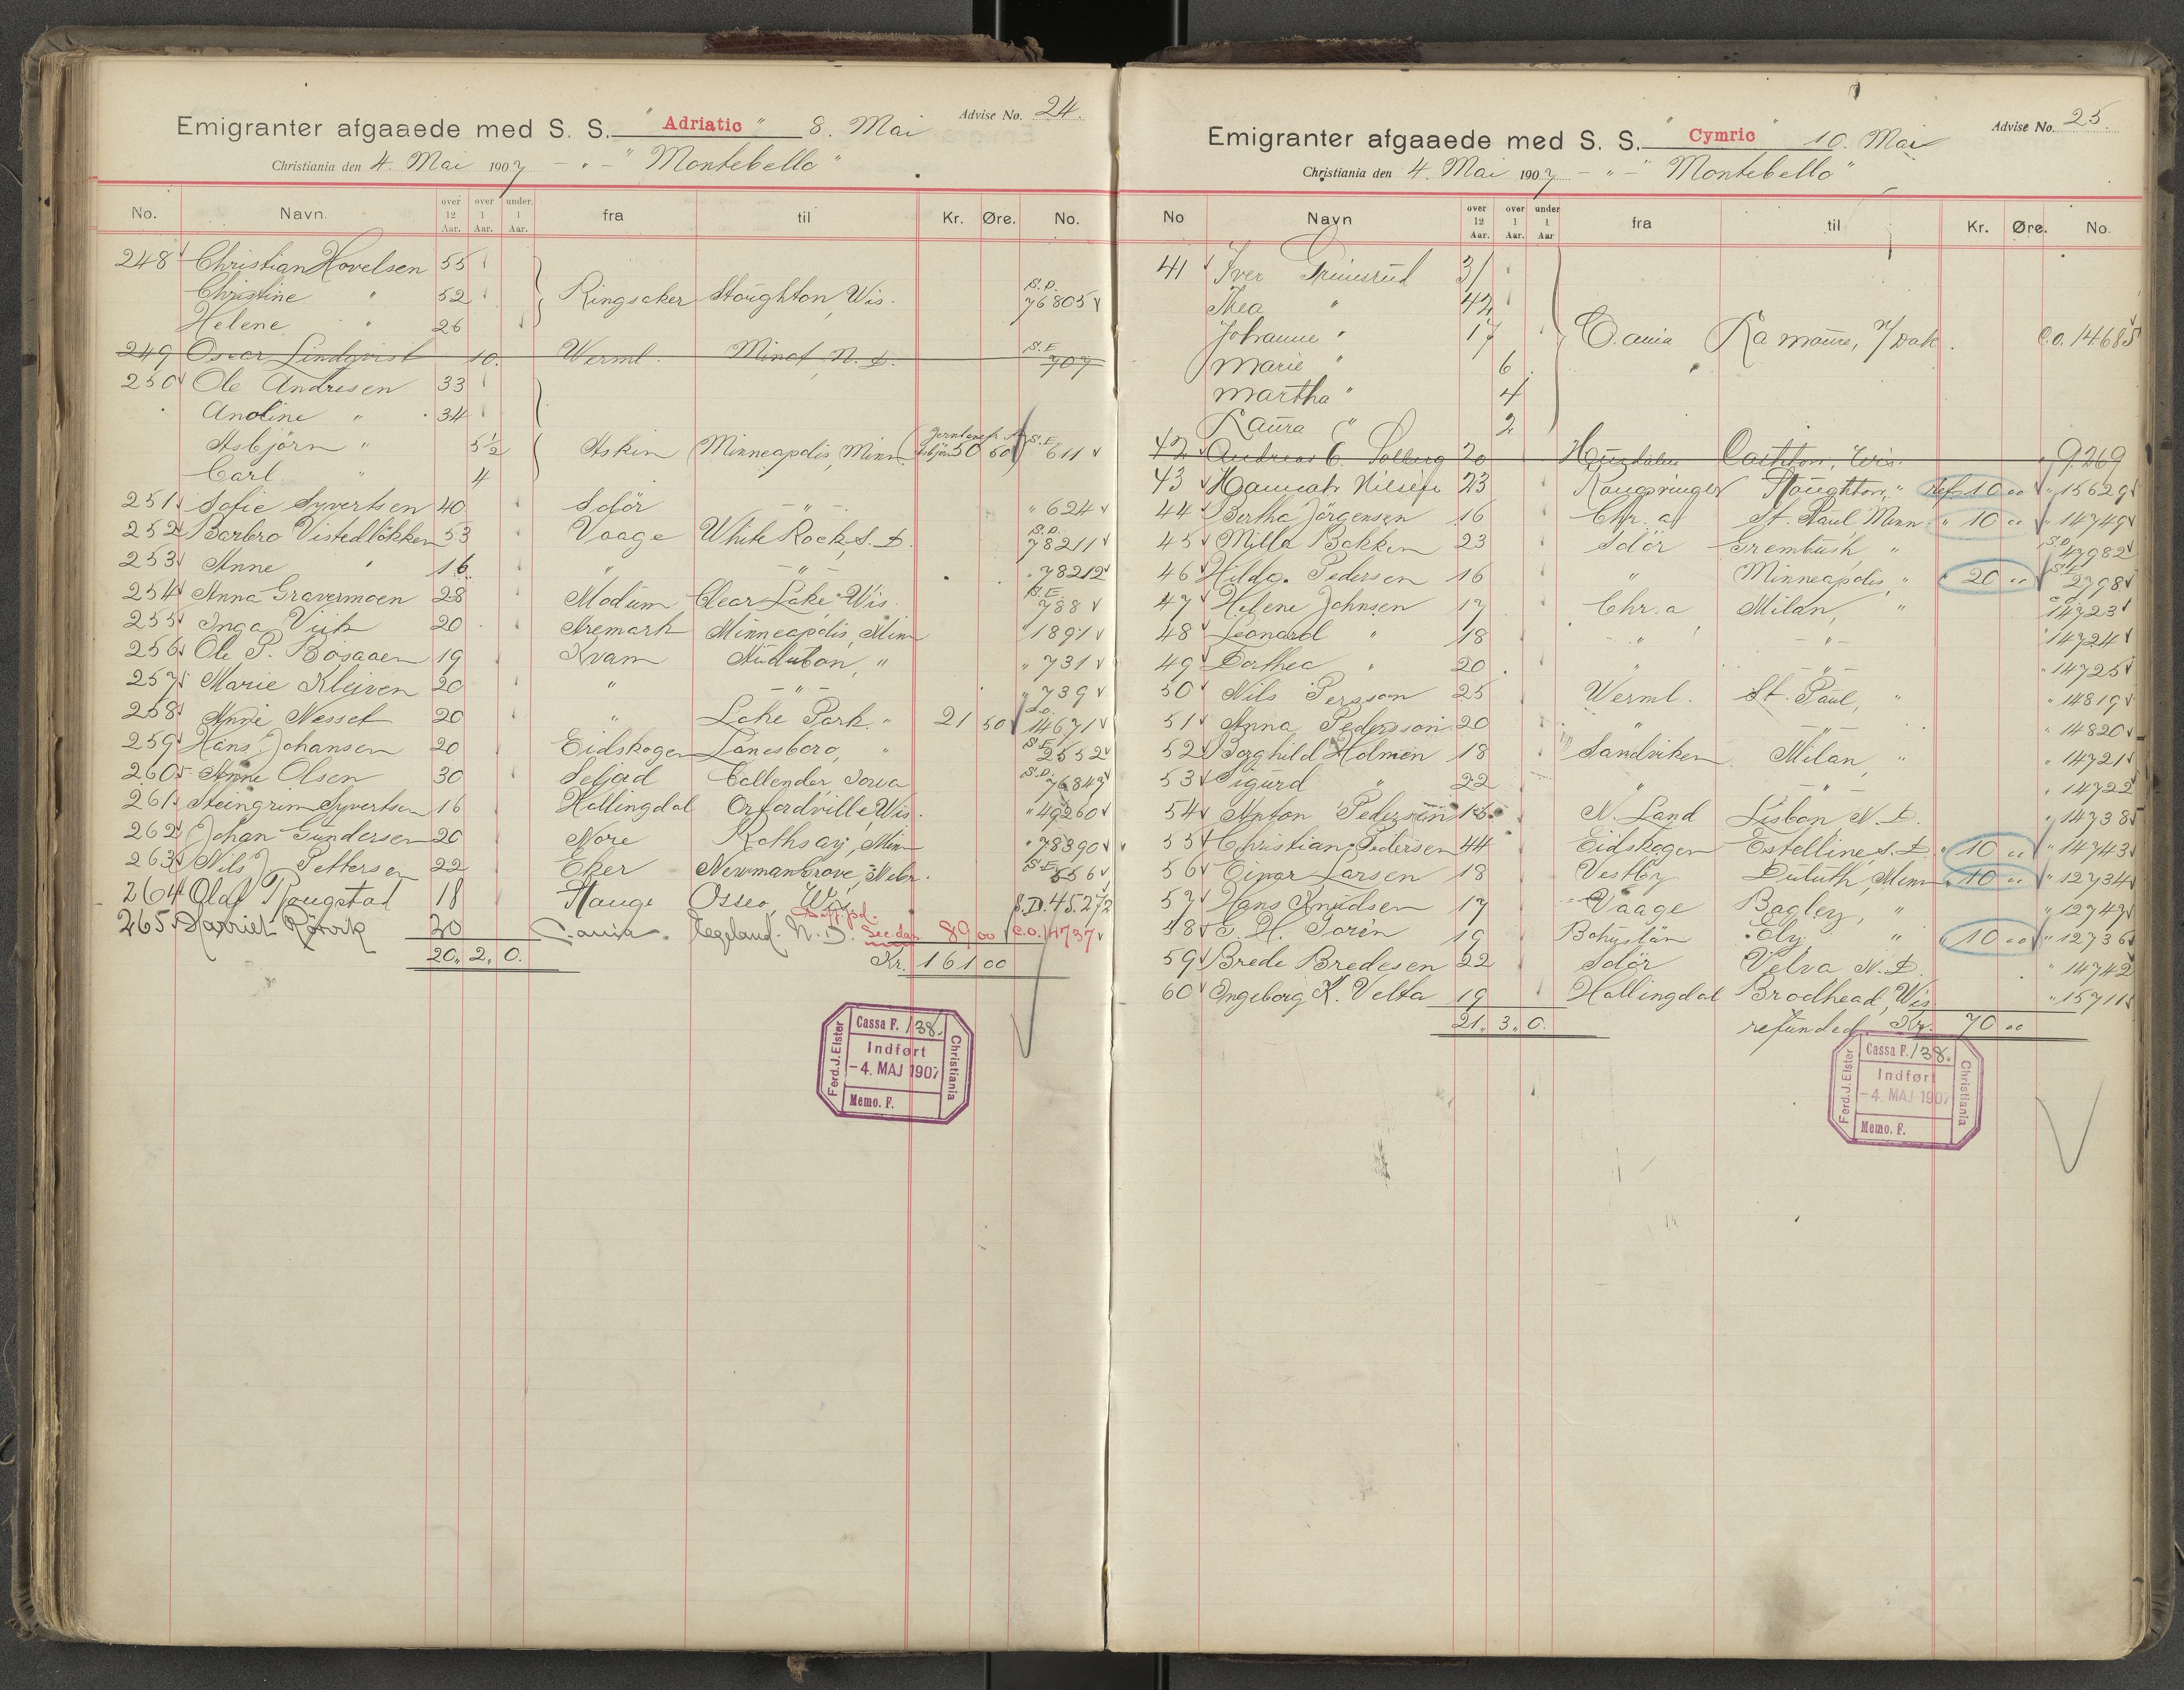 Emigranter afgaaede med S. S. "Adriatic" 8. Mai Advise No. 24.
Christiania den 4. Mai 1907 - " - "Montebello"
No. Navn. over 12 Aar. over 1 Aar. under 1 Aar. fra til Kr. Øre. No.
248 Christian Hovelsen 55
Christine " 52 Ringsaker Stoughton, Wis. S.D. 76805
Helene " 26
249 Oscar Lindqvist 10. Werml. Minot, N. D. S.E. 707
250 Ole Andresen 33
Anoline " 34
Asbjörn " 5½ Askim Minneapolis, Minn. 50 50 S.E. 611
Carl " 4
251 Sofie Syvertsen 40 Solör - " - " 624
252 Barbro Vistedlökken 53 Vaage White Rock S. D. S.D. 78211
253 Anne " 16 " - " - " 78212
254 Anna Gravermoen 28 Modum Clear Lake Wis. S.E. 788
255 Inga Viik 20 Aremark Minneapolis, Minn " 1891
256 Ole P. Bosaaen 19 Kvam Audubon, " " 731
257 Marie Kleiven 20 " - " - " 739
258 Anne Nesset 20 " Lake Park " 21 50 C.O. 14671
259 Hans Johansen 20 Eidskogen Lanesboro, " S.E. 2552
260 Anne Olsen 30 Seljord Callender Iowa S.D. 76849
261 Steingrim Syvertsen 16 Hallingdal Orfordville, Wis. " 49260
262 Johan Gundersen 20 Nore Rothsay, Minn " 78390
263 Nils J. Pettersen 22 Eker Newman Grove, Nebr. S.E. 556
264 Olaf Rougstad 18 Hauge Osseo, Wis. S.D. 45.272
265. Harriet Rörvik 20 C.ania. Hegeland. N. D. 89 00 C.O. 14737
20,, 2,, 0. Kr. 161 00
Cassa F. 138.
Indført
-4. MAJ 1907
Memo. F.
Ferd. J. Elster
Christiania
Emigranter afgaaede med S. S. "Cymric" 10. Mai Advise No. 25.
Christiania den 4. Mai 1907 - " - "Montebello"
No Navn over 12 Aar. over 1 Aar. under 1 Aar fra til Kr. Øre. No.
41 Iver Grimsrud 31
Thea " 42
Johanne " 17 C.ania La moure, N/Dak. C.O. 14685
Marie " 6
Martha " 4
Laura " 2
42 Andreas C. Solberg 20 Cashton, Wis. " 9269
43 Hannah Nilsen 23 Kongsvinger Stoughton, " ref. 10 00 " 15629
44 Bertha Jörgensen 16 Chr. a St. Paul Minn " 10 00 " 14749
45 Milla Bakken 23 Solör Grembush, " S.D. 47982
46 Hilda Pedersen 16 " Minneapolis, " " 20 00 S.E. 2798
47 Helene Johnsen 17 Chr. a Milan, " C.O. 14723
48 Leonard " 18 - " - - " - " 14724
49 Dorthea " 20 " - " - " 14725
50 Nils Persson 25 Werml. St. Paul, " " 14819
51 Anna Pedersson 20 " - " - " 14820
52 Borghild Holmen 18 Sandviken Milan, " " 14721
53 Sigurd " 22 " - " - " 14722
54 Anton Pedersen 18 N. Land Lisbon N. D. " 14738
55 Christian Pedersen 44 Eidskogen Estelline, S. D. " 10 00 " 14743
56 Einar Larsen 18 Vestby Duluth, Minn " 10 00 " 12734
57 Hans Knudsen 17 Vaage Bagley, " " 12749
58 E. H. Torin 19 Bohuslän Ely, " " 10 00 " 12736
59 Brede Bredesen 22 Solör Velva N. D. " 14742
60 Ingeborg K. Velta 19 Hallingdal Brodhead, Wis " 15711
21,, 3,, 0. refunded Kr. 70 00
Cassa F. 138.
Indført
-4. MAJ 1907
Memo. F.
Ferd. J. Elster
Christiania